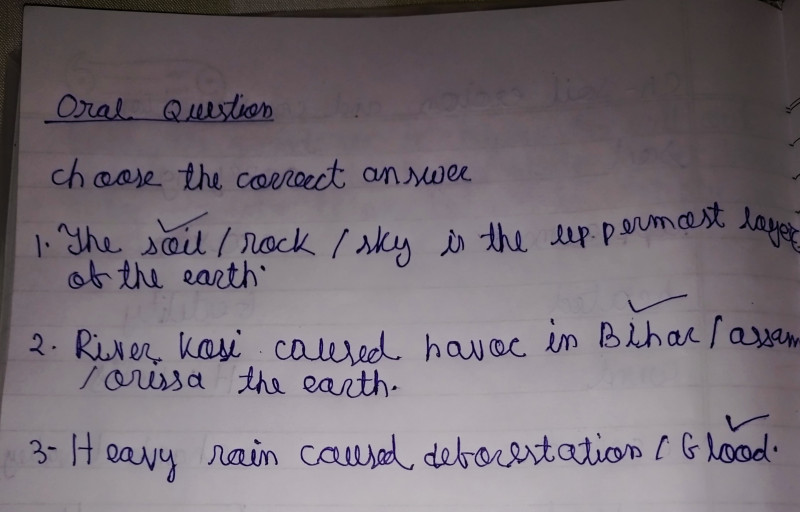 Oral Question
choose the correct answer
1. The soil / rock / sky is the uppermost layer
of the earth.
2. River Kosi caused havoc in Bihar / assam
/ orissa the earth.
3- Heavy rain caused deforestation / Flood.